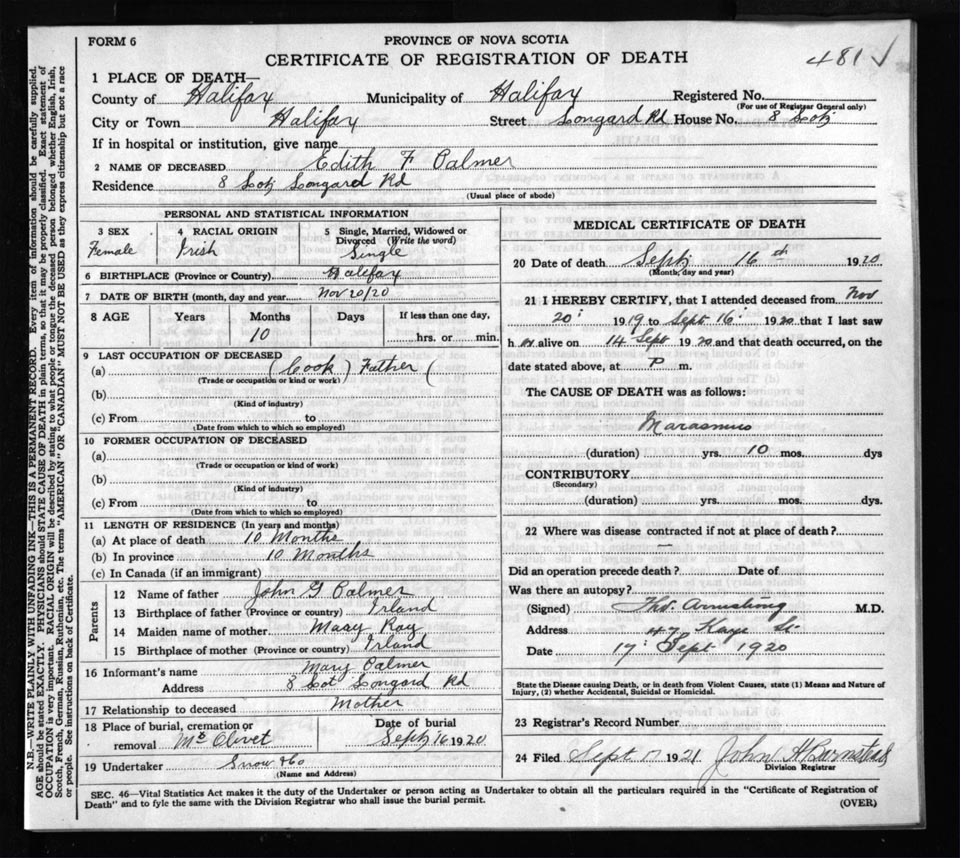 FORM 6
PROVINCE OF NOVA SCOTIA
CERTIFICATE OF REGISTRATION OF DEATH
481 ✓
1 PLACE OF DEATH—
County of Halifax Municipality of Halifax Registered No.
(For use of Registrar General only)
City or Town Halifax Street Longard Rd House No. 8
If in hospital or institution, give name
2 NAME OF DECEASED Edith F Palmer
Residence 8 Longard Rd
(Usual place of abode)
PERSONAL AND STATISTICAL INFORMATION
3 SEX 4 RACIAL ORIGIN 5 Single, Married, Widowed or Divorced (Write the word)
Female Irish Single
6 BIRTHPLACE (Province or Country) Halifax
7 DATE OF BIRTH (month, day and year) Nov 20/20
8 AGE Years Months Days If less than one day,
10 hrs. or min.
9 LAST OCCUPATION OF DECEASED
(a) (Cook) Father (
(Trade or occupation or kind or work)
(b)
(Kind of industry)
(c) From to
(Date from which to which so employed)
10 FORMER OCCUPATION OF DECEASED
(a)
(Trade or occupation or kind of work)
(b)
(Kind of industry)
(c) From to
(Date from which to which so employed)
11 LENGTH OF RESIDENCE (In years and months)
(a) At place of death 10 Months
(b) In province 10 Months
(c) In Canada (if an immigrant)
Parents
12 Name of father John G Palmer
13 Birthplace of father (Province or country) Irland
14 Maiden name of mother Mary Ray
15 Birthplace of mother (Province or country) Irland
16 Informant's name Mary Palmer
Address 8 Lot Longard Rd
17 Relationship to deceased Mother
18 Place of burial, cremation or removal Mt Olivet
Date of burial Sept 16 1920
19 Undertaker Snow & Co
(Name and Address)
MEDICAL CERTIFICATE OF DEATH
20 Date of death Sept 16th 1920
(Month, day and year)
21 I HEREBY CERTIFY, that I attended deceased from Nov
20 1919 to Sept 16 1920 that I last saw
h er alive on 14 Sept 1920 and that death occurred, on the
date stated above, at P m.
The CAUSE OF DEATH was as follows:
Marasmus
(duration) yrs. 10 mos. dys
CONTRIBUTORY
(Secondary)
(duration) yrs. mos. dys.
22 Where was disease contracted if not at place of death?
Did an operation precede death? Date of
Was there an autopsy?
(Signed) Tho. Armstrong M.D.
Address 47 Kaye St.
Date 17 Sept 1920
State the Disease causing Death, or in death from Violent Causes, state (1) Means and Nature of
Injury, (2) whether Accidental, Suicidal or Homicidal.
23 Registrar's Record Number
24 Filed Sept 17 1921 John H Barnstead
Division Registrar
SEC. 46—Vital Statistics Act makes it the duty of the Undertaker or person acting as Undertaker to obtain all the particulars required in the "Certificate of Registration of
Death" and to fyle the same with the Division Registrar who shall issue the burial permit.
(OVER)
N.B.—WRITE PLAINLY WITH UNFADING INK—THIS IS A PERMANENT RECORD. Every item of information should be carefully supplied.
AGE should be stated EXACTLY. PHYSICIANS should STATE CAUSE OF DEATH in plain terms, so that it may be properly classified. Exact statement of
OCCUPATION is very important. RACIAL ORIGIN will be described by stating to what people or tongue the deceased person belonged whether English, Irish,
Scotch, French, German, Russian, Ruthenian, etc. The terms "AMERICAN" OR "CANADIAN" MUST NOT BE USED as they express citizenship but not a race
or people. See instructions on back of Certificate.